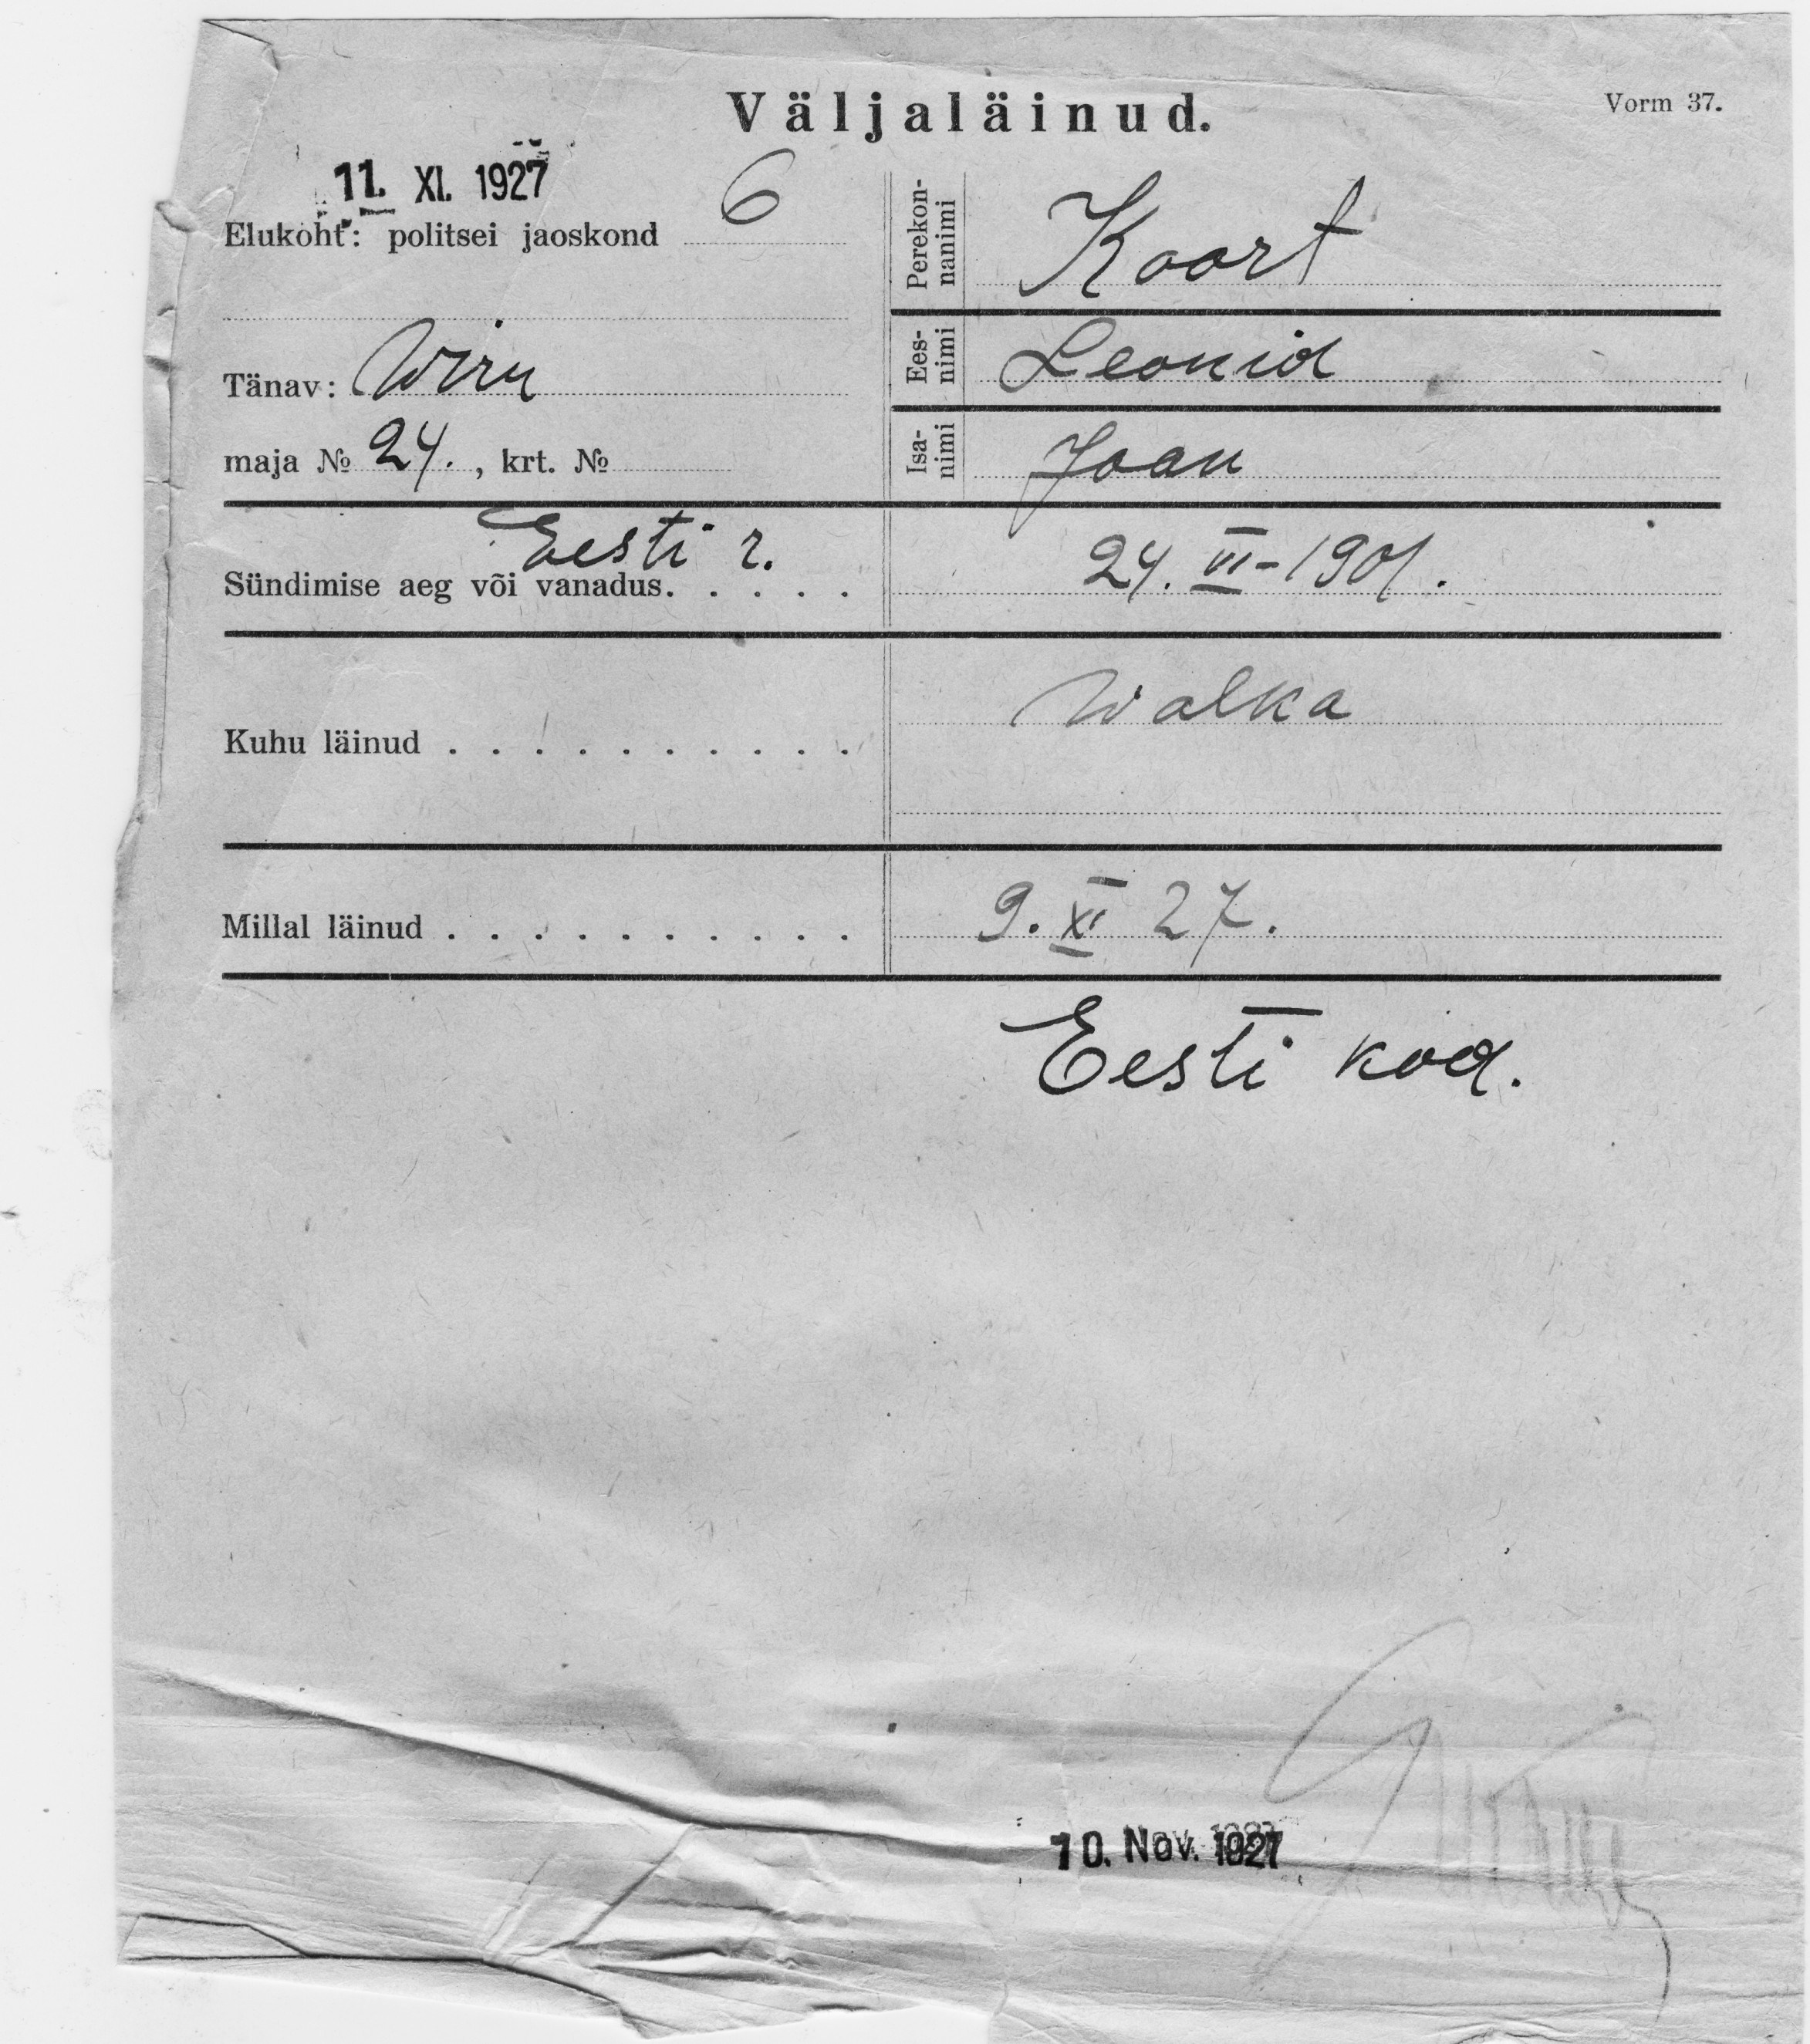 Väljaläinud.
Vorm 37.
11. XI. 1927
Elukoht: politsei jaoskond 6
Tänav: Wiru
maja № 24. , krt. №
Perekon-
nanimi
Koort
Ees-
nimi
Leonid
Isa-
nimi
Joan
Eesti r.
Sündimise aeg või vanadus. . . . . 24. VI - 1901.
Kuhu läinud . . . . . . . . . . Walka
Millal läinud . . . . . . . . . . 9. XI 27.
Eesti kod.
10. Nov. 1927